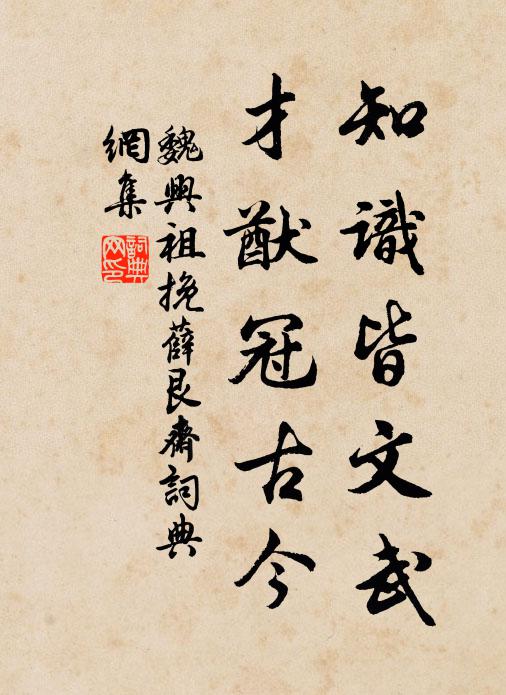 知識皆文武
才猷冠古今
魏興祖挽薛艮齋詞典
網集
詞典網印